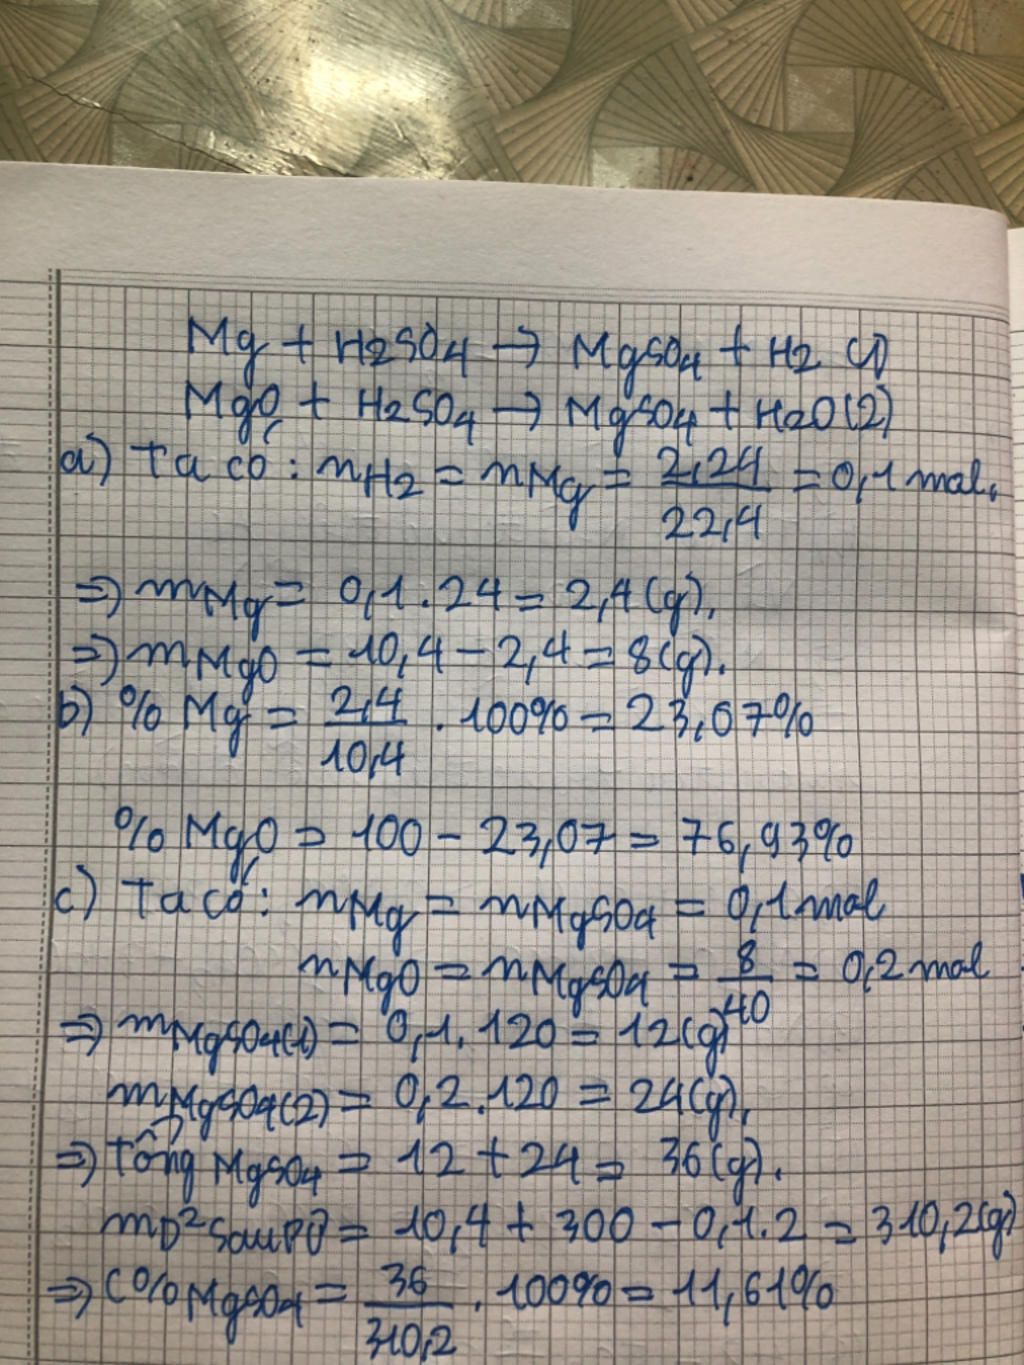 Mg + H2SO4 → MgSO4 + H2 (1)
MgO + H2SO4 → MgSO4 + H2O (2)
a) Ta có : nH2 = nMg = 2,24/22,4 = 0,1 mol.
=> mMg = 0,1.24 = 2,4(g).
=> mMgO = 10,4 - 2,4 = 8(g).
b) % Mg = 2,4/10,4 . 100% = 23,07%
% MgO = 100 - 23,07 = 76,93%
c) Ta có : nMg = nMgSO4 = 0,1 mol
nMgO = nMgSO4 = 8/40 = 0,2 mol
=> mMgSO4(1) = 0,1.120 = 12(g)
mMgSO4(2) = 0,2.120 = 24(g).
=> tổng MgSO4 = 12 + 24 = 36(g).
mD² sau PƯ = 10,4 + 300 - 0,1.2 = 310,2(g)
=> C% MgSO4 = 36/310,2 . 100% = 11,61%